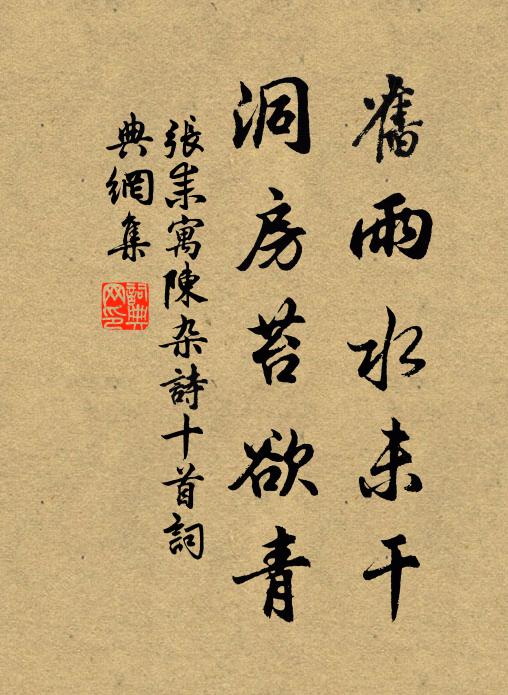 舊雨水未干
洞房苔欲青
張耒寓陳杂詩十首詞
典網集
詞典网印